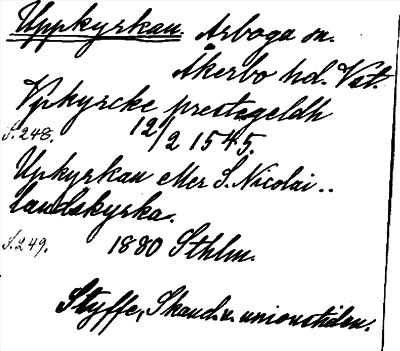 Uppkyrkan. Arboga sn.
Åkerbo hd. Vst.
Vpkyrcke prestegeldh
S. 248. 12/2 1545.
Upkyrkan eller S. Nicolai..
landskyrka.
S. 249. 1880 Sthlm.
Styffe, Skand. u. unionstiden.